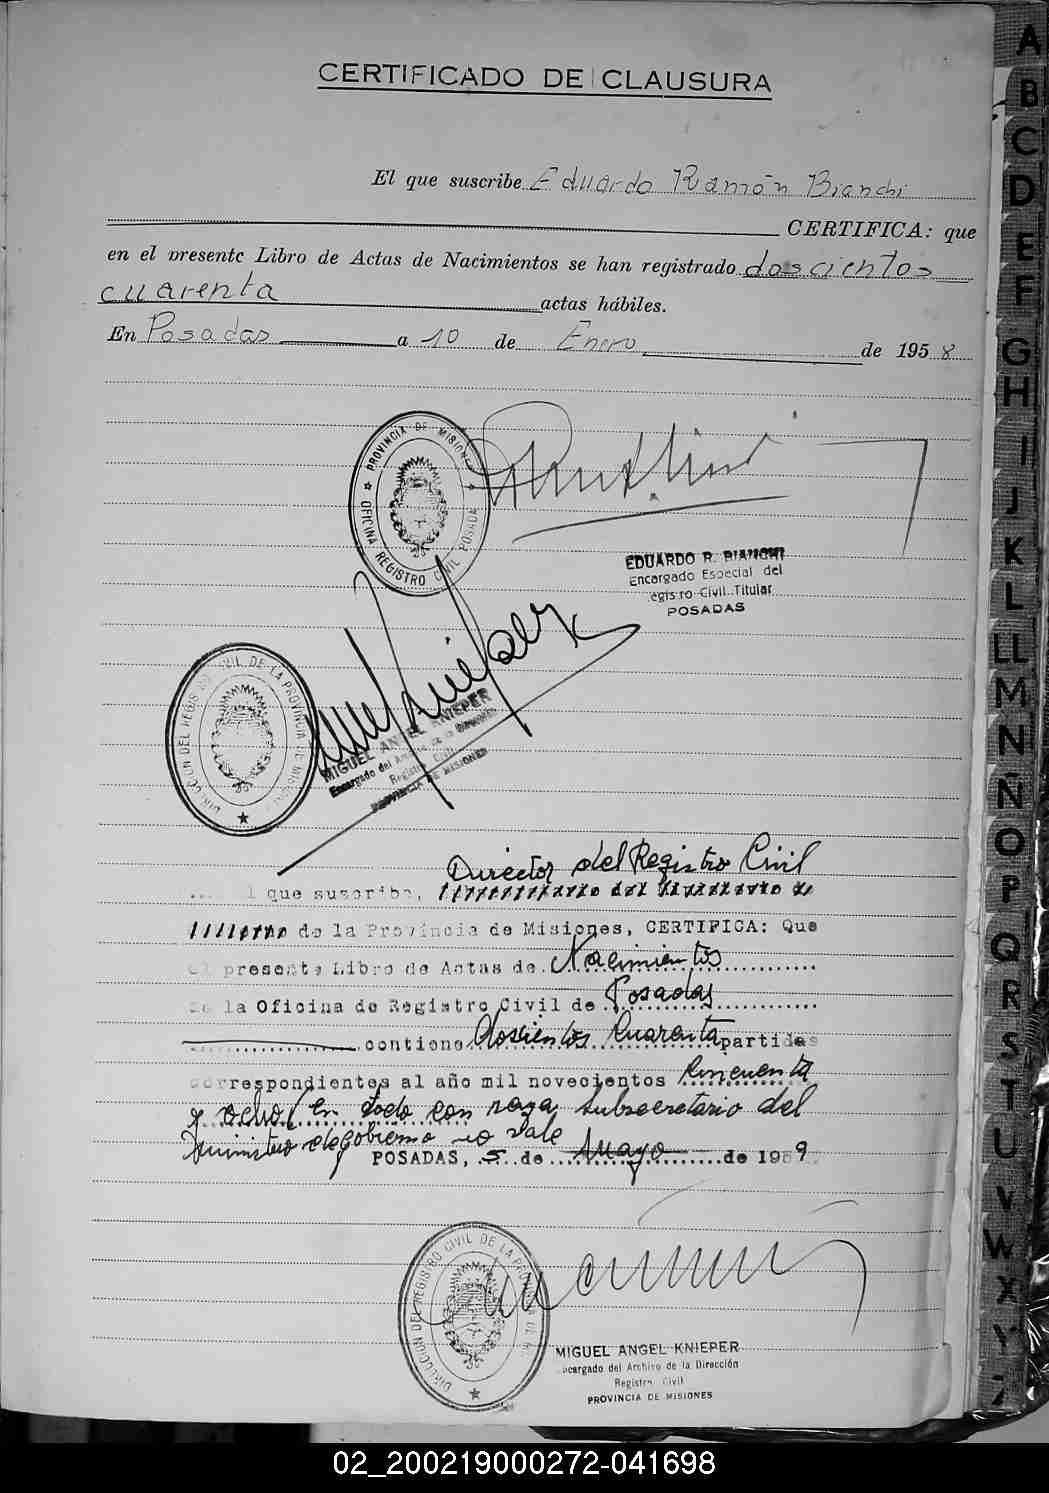 CERTIFICADO DE CLAUSURA
El que suscribe Eduardo Ramón Bianchi
CERTIFICA: que
en el presente Libro de Actas de Nacimientos se han registrado doscientos
cuarenta actas hábiles.
En Posadas a 10 de Enero de 1958
PROVINCIA DE MISIONES
OFICINA REGISTRO CIVIL POSADAS
EDUARDO R. BIANCHI
Encargado Especial del
egis ro Civil Titular
POSADAS
DIRECCION DEL REGISTRO CIVIL DE LA PROVINCIA DE MISIONES
MIGUEL ANGEL KNIEPER
Encargado del Archivo de la Dirección
Registro Civil
PROVINCIA DE MISIONES
Director del Registro Civil
l que suscribe,
de la Provincia de Misiones, CERTIFICA: Que
el presente Libro de Actas de Nacimientos
de la Oficina de Registro Civil de Posadas
contiene Dosientos Cuarenta partidas
correspondientes al año mil novecientos Cincuenta
y ocho (en todo con raya subsecretario del
ministro de gobierno no vale
POSADAS, 5 de Mayo de 1959
DIRECCION DEL REGISTRO CIVIL DE LA PROVINCIA DE MI
MIGUEL ANGEL KNIEPER
ncargado del Archivo de la Dirección
Registro Civil
PROVINCIA DE MISIONES
A
B
C
D
E
F
G
H
I
J
K
L
LL
M
N
Ñ
O
P
Q
R
S
T
U
V
W
X
Y
Z
02_200219000272-041698